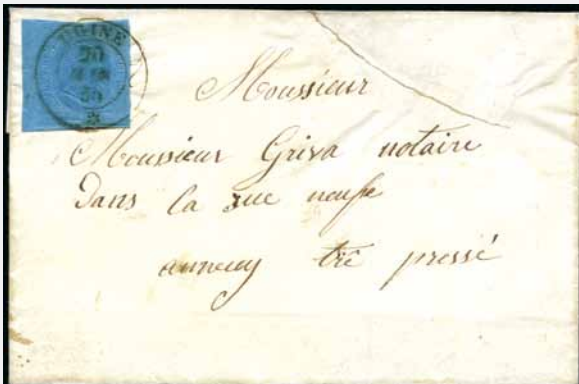 UGINE
20
Monsieur
Monsieur Griva notaire
Dans la rue neufe
annecy trê pressé